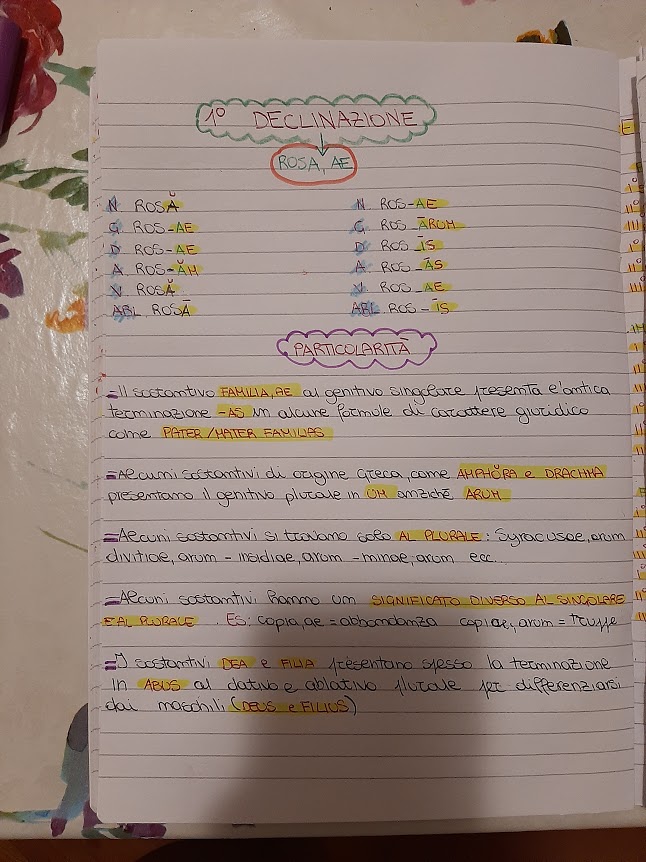 1° DECLINAZIONE
ROSA, AE
N ROSĂ
G ROS-AE
D ROS-AE
A ROS-ĂM
V. ROSĂ
ABL. ROSĀ
N ROS-AE
G ROS_ĀRUM
D ROS_ĪS
A ROS_ĀS
V. ROS_AE
ABL. ROS-ĪS
PARTICOLARITÀ
-Il sostantivo FAMILIA, AE al genitivo singolare presenta l'antica
terminazione -AS in alcune formule di carattere giuridico
come PATER/MATER FAMILIAS
-Alcuni sostantivi di origine Greca, come AMPHŎRA e DRACHMA
presentano il genitivo plurale in UM anziché ARUM
-Alcuni sostantivi si trovano solo AL PLURALE: Syracusae, arum
divitiae, arum - insidiae, arum - minae, arum ecc...
-Alcuni sostantivi hanno un SIGNIFICATO DIVERSO AL SINGOLARE
E AL PLURALE. ES: copia, ae = abbondanza copiae, arum = truppe
-I sostantivi DEA e FILIA presentano spesso la terminazione
in ABUS al dativo e ablativo plurale per differenziarsi
dai maschili (DEUS e FILIUS)